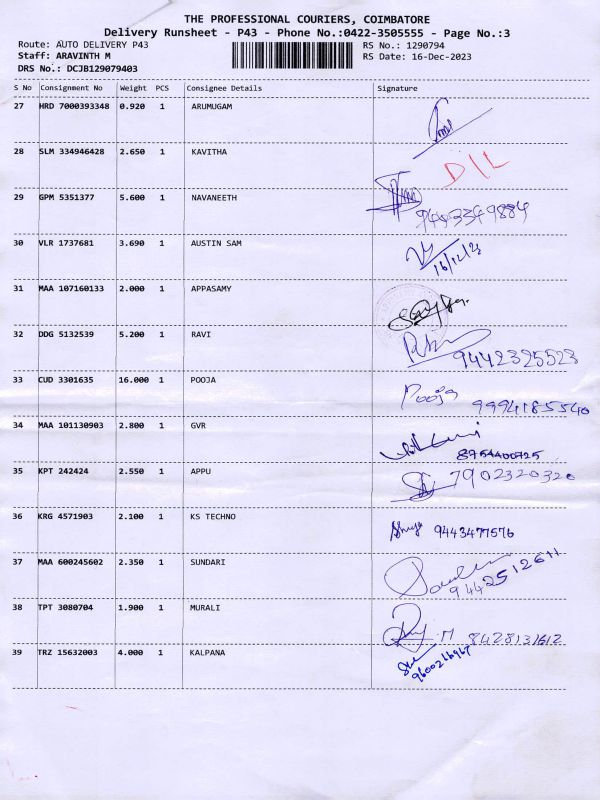 THE PROFESSIONAL COURIERS, COIMBATORE
Delivery Runsheet - P43 - Phone No.:0422-3505555 - Page No.:3
Route: AUTO DELIVERY P43 RS No.: 1290794
Staff: ARAVINTH M RS Date: 16-Dec-2023
DRS No.: DCJB129079403
S No Consignment No Weight PCS Consignee Details Signature
27 HRD 7000393348 0.920 1 ARUMUGAM
28 SLM 334946428 2.650 1 KAVITHA D/L
29 GPM 5351377 5.600 1 NAVANEETH 9443349884
30 VLR 1737681 3.690 1 AUSTIN SAM
16/12/23
31 MAA 107160133 2.000 1 APPASAMY
32 DDG 5132539 5.200 1 RAVI 9442325523
33 CUD 3301635 16.000 1 POOJA Pooja 9994185540
34 MAA 101130903 2.800 1 GVR
8754400725
35 KPT 242424 2.550 1 APPU 7902320320
36 KRG 4571903 2.100 1 KS TECHNO 9443477576
37 MAA 600245602 2.350 1 SUNDARI 9442512611
38 TPT 3080704 1.900 1 MURALI M 8428131612
39 TRZ 15632003 4.000 1 KALPANA
9600266967